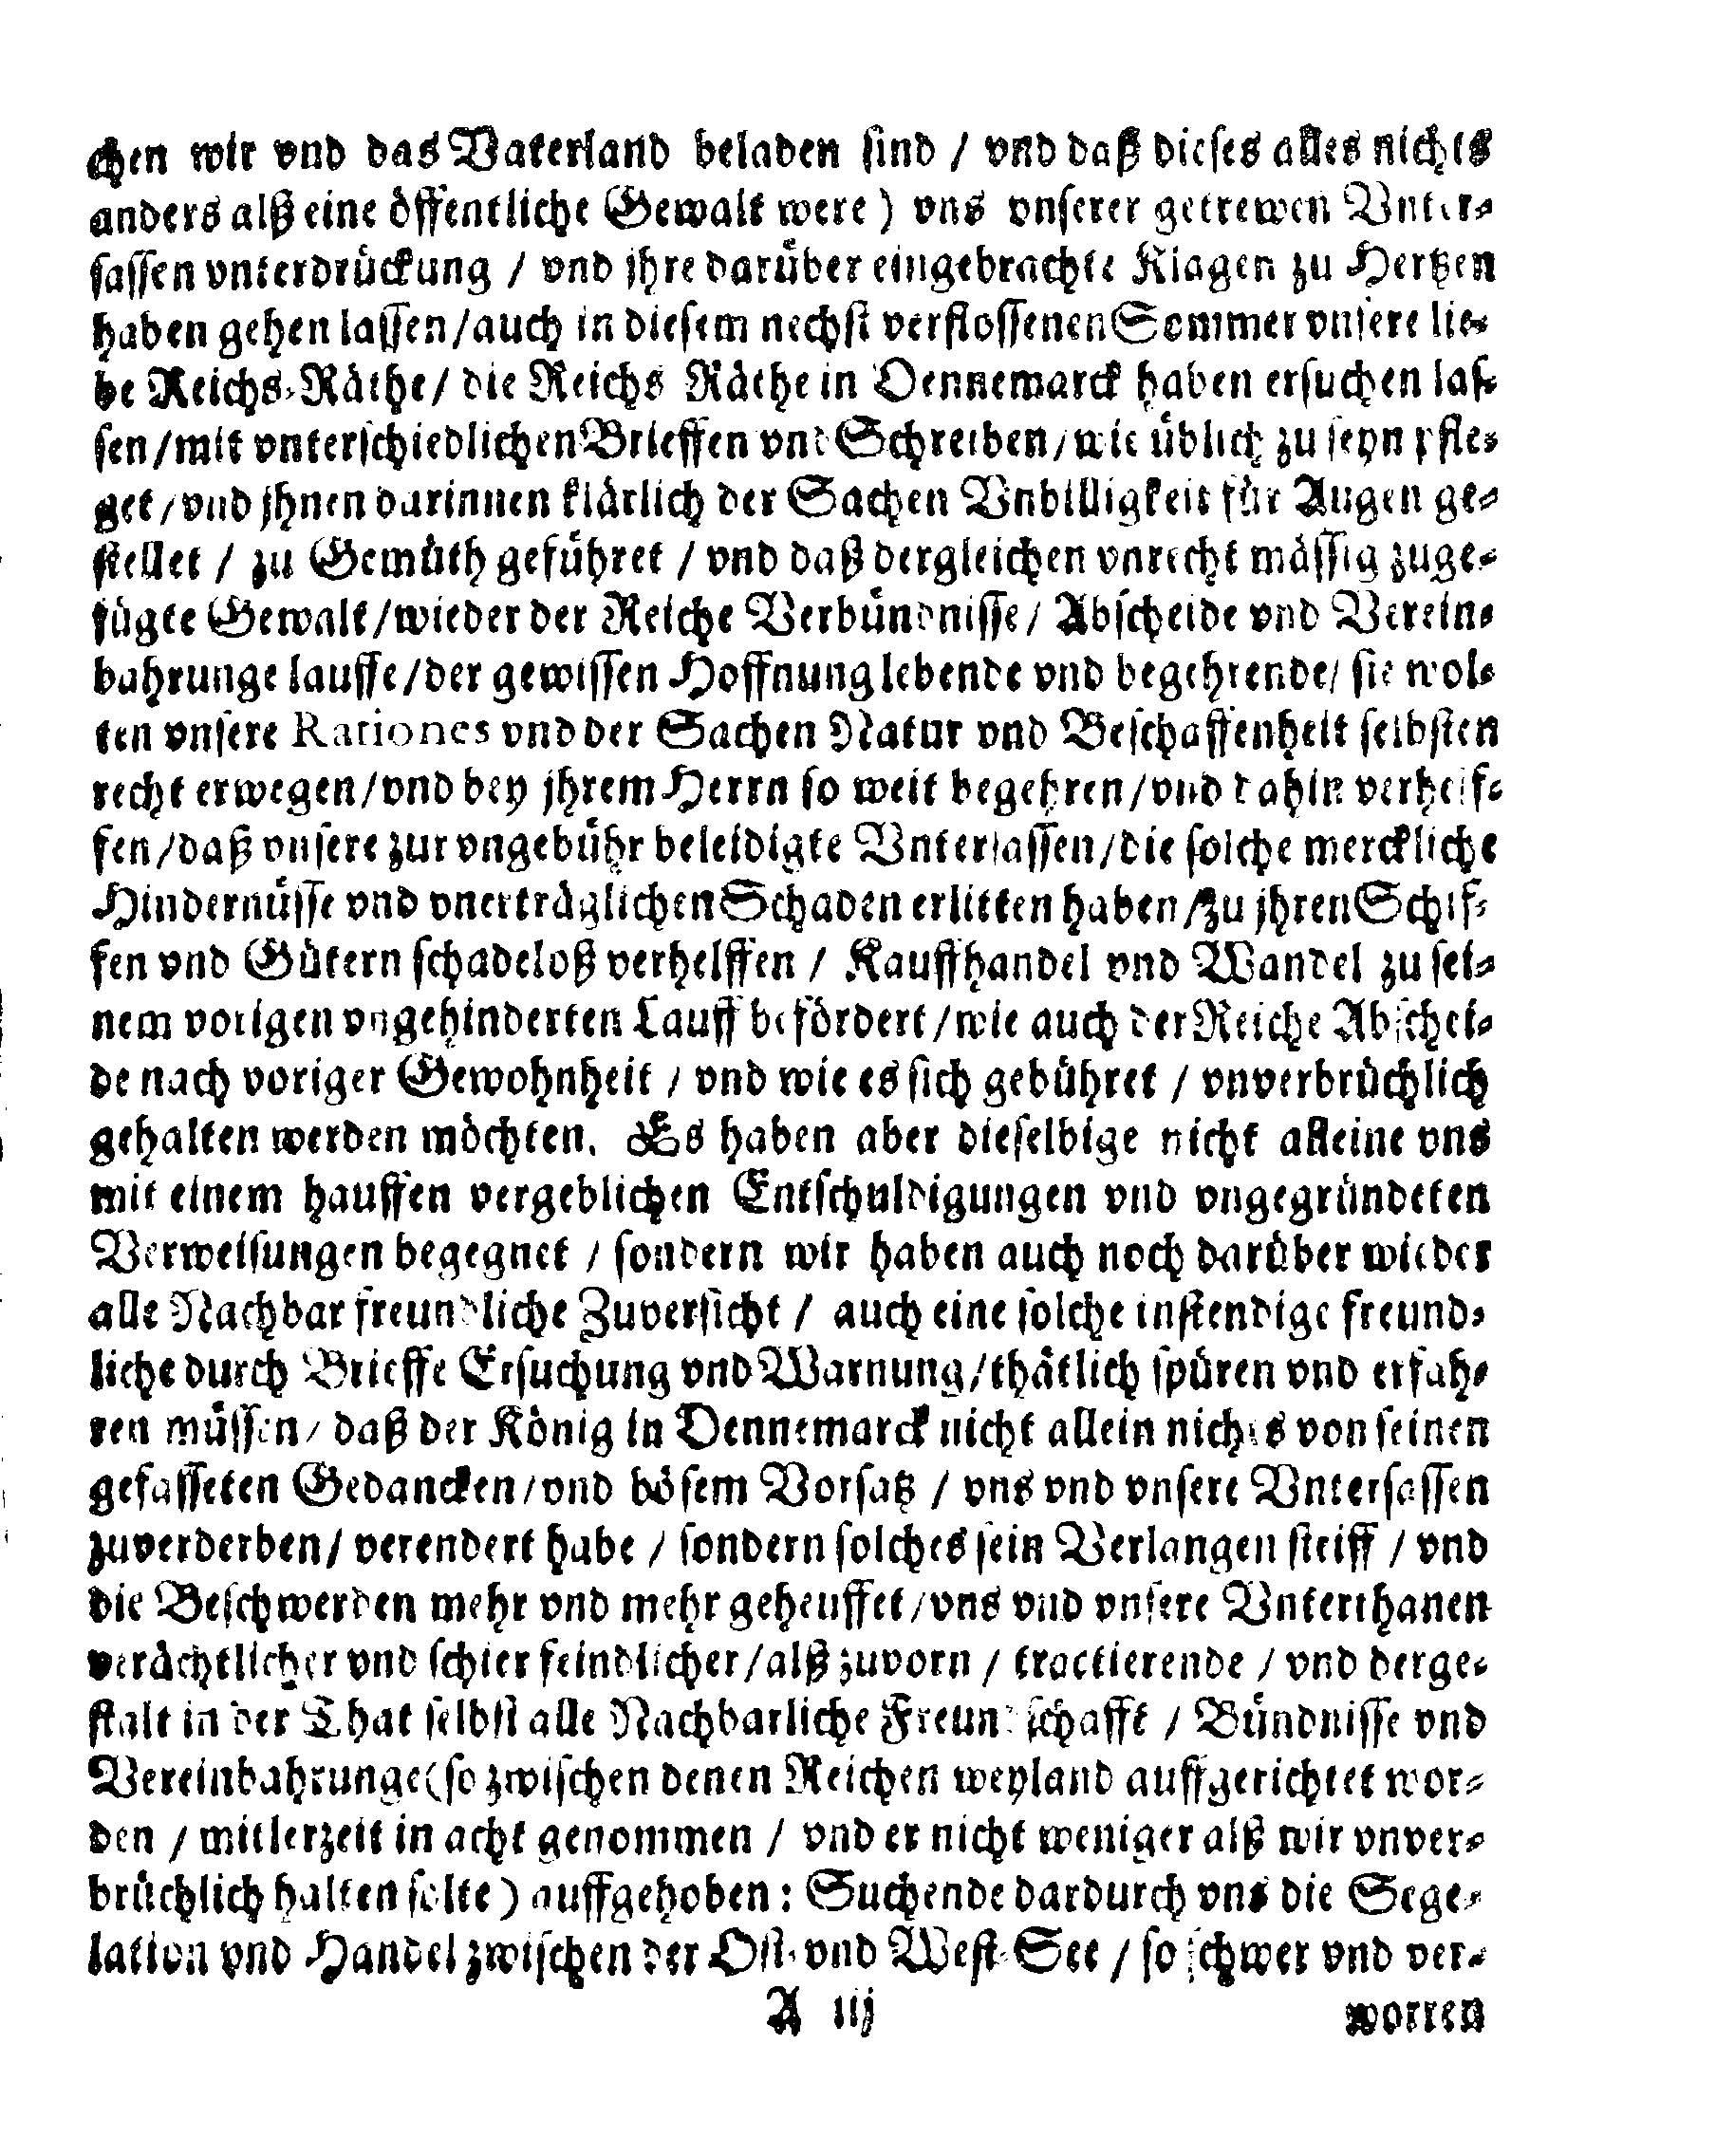 chen wir vnd das Vaterland beladen sind / vnd daß dieses alles nichts
anders alß eine öffentliche Gewalt were) vns vnserer getrewen Vnter-
sassen vnterdrückung / vnd jhre darüber eingebrachte Klagen zu Hertzen
haben gehen lassen/auch in diesem nechst verflossenen Sommer vnsere lie-
be Reichs-Räthe/ die Reichs Räthe in Dennemarck haben ersuchen las-
sen/mit vnterschiedlichen Brieffen vnd Schreiben/wie üblich zu seyn pfle-
get/vnd jhnen darinnen klärlich der Sachen Vnbilligkeit für Augen ge-
stellet / zu Gemüth geführet / vnd daß dergleichen vnrecht mässig zuge-
fügte Gewalt/wieder der Reiche Verbündnisse/ Abscheide vnd Verein-
bahrunge lauffe/der gewissen Hoffnung lebende vnd begehrende/ sie wol-
ten vnsere Rationes vnd der Sachen Natur vnd Beschaffenheit selbsten
recht erwegen/vnd bey jhrem Herrn so weit begehren/vnd dahin verhelf-
fen/daß vnsere zur vngebühr beleidigte Vntersassen/die solche merckliche
Hindernüsse vnd vnerträglichen Schaden erlitten haben/zu jhren Schif-
fen vnd Gütern schadeloß verhelffen / Kauffhandel vnd Wandel zu sei-
nem vorigen vngehinderten Lauff befördert/wie auch der Reiche Abschei-
de nach voriger Gewohnheit / vnd wie es sich gebühret / vnverbrüchlich
gehalten werden möchten. Es haben aber dieselbige nicht alleine vns
mit einem hauffen vergeblichen Entschuldigungen vnd vngegründeten
Verweisungen begegnet / sondern wir haben auch noch darüber wieder
alle Nachbar freundliche Zuversicht / auch eine solche instendige freund-
liche durch Brieffe Ersuchung vnd Warnung/thätlich spüren vnd erfah-
ren müssen/ daß der König in Dennemarck nicht allein nichts von seinen
gefasseten Gedancken/vnd bösem Vorsatz / vns vnd vnsere Vntersassen
zuverderben/ verendert habe / sondern solches sein Verlangen steiff / vnd
die Beschwerden mehr vnd mehr geheuffet/vns vnd vnsere Vnterthanen
verächtlicher vnd schier feindlicher/alß zuvorn / tractierende / vnd derge-
stalt in der That selbst alle Nachbarliche Freundschafft / Bündnisse vnd
Vereinbahrunge(so zwischen denen Reichen weyland auffgerichtet wor-
den / mitlerzeit in acht genommen / vnd er nicht weniger alß wir vnver-
brüchlich halten solte) auffgehoben: Suchende dardurch vns die Sege-
lation vnd Handel zwischen der Ost- vnd West-See / so schwer vnd ver-
A iij
worren